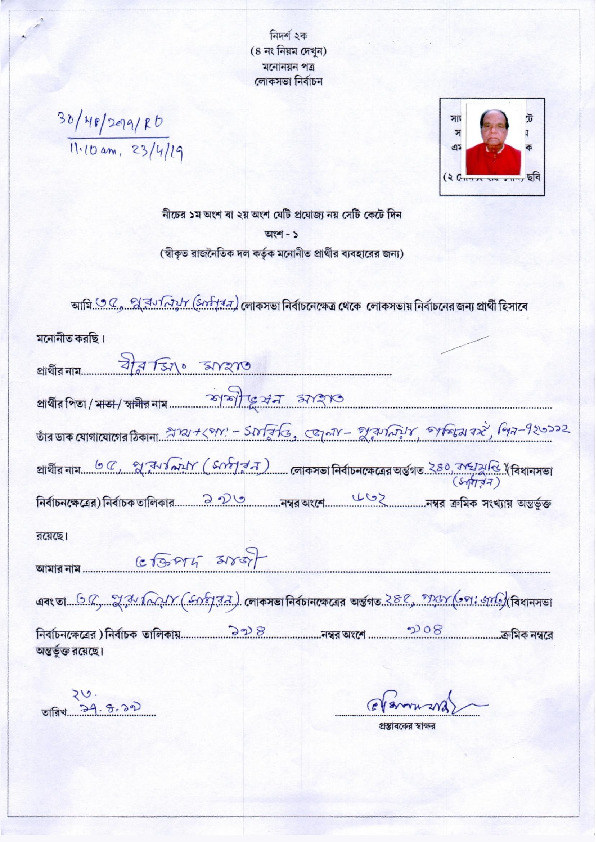 নিদর্শ ২ক
(৪ নং নিয়ম দেখুন)
মনোনয়ন পত্র
লোকসভা নির্বাচন
11:10 am, 23/4/19
নীচের ১ম অংশ বা ২য় অংশ যেটি প্রযোজ্য নয় সেটি কেটে দিন
অংশ - ১
(স্বীকৃত রাজনৈতিক দল কর্তৃক মনোনীত প্রার্থীর ব্যবহারের জন্য)
আমি ৩৫, পুরুলিয়া (সাধারন) লোকসভা নির্বাচনক্ষেত্র থেকে লোকসভায় নির্বাচনের জন্য প্রার্থী হিসাবে
মনোনীত করছি।
প্রার্থীর নাম বীর সিং মাহাত
প্রার্থীর পিতা / মাতা / স্বামীর নাম শশীভূষন মাহাত
তাঁর ডাক যোগাযোগের ঠিকানা গ্রাম+পো:- জেলা- পুরুলিয়া, পশ্চিমবঙ্গ, পিন-
প্রার্থীর নাম ৩৫, পুরুলিয়া (সাধারন) লোকসভা নির্বাচনক্ষেত্রের অর্ন্তগত ২৪০, বাঘমুন্ডি (বিধানসভা
(সাধারন)
নির্বাচনক্ষেত্রের) নির্বাচক তালিকার নম্বর অংশে নম্বর ক্রমিক সংখ্যায় অন্তর্ভূক্ত
রয়েছে।
আমার নাম ভক্তিপদ মাজী
এবং তা ৩৫, পুরুলিয়া (সাধারন) লোকসভা নির্বাচনক্ষেত্রের অর্ন্তগত ২৪৫, পাড়া (তপ: জাতি) (বিধানসভা
নির্বাচনক্ষেত্রের ) নির্বাচক তালিকায় নম্বর অংশে ক্রমিক নম্বরে
অন্তর্ভূক্ত রয়েছে।
২৩.
তারিখ
প্রস্তাবকের স্বাক্ষর